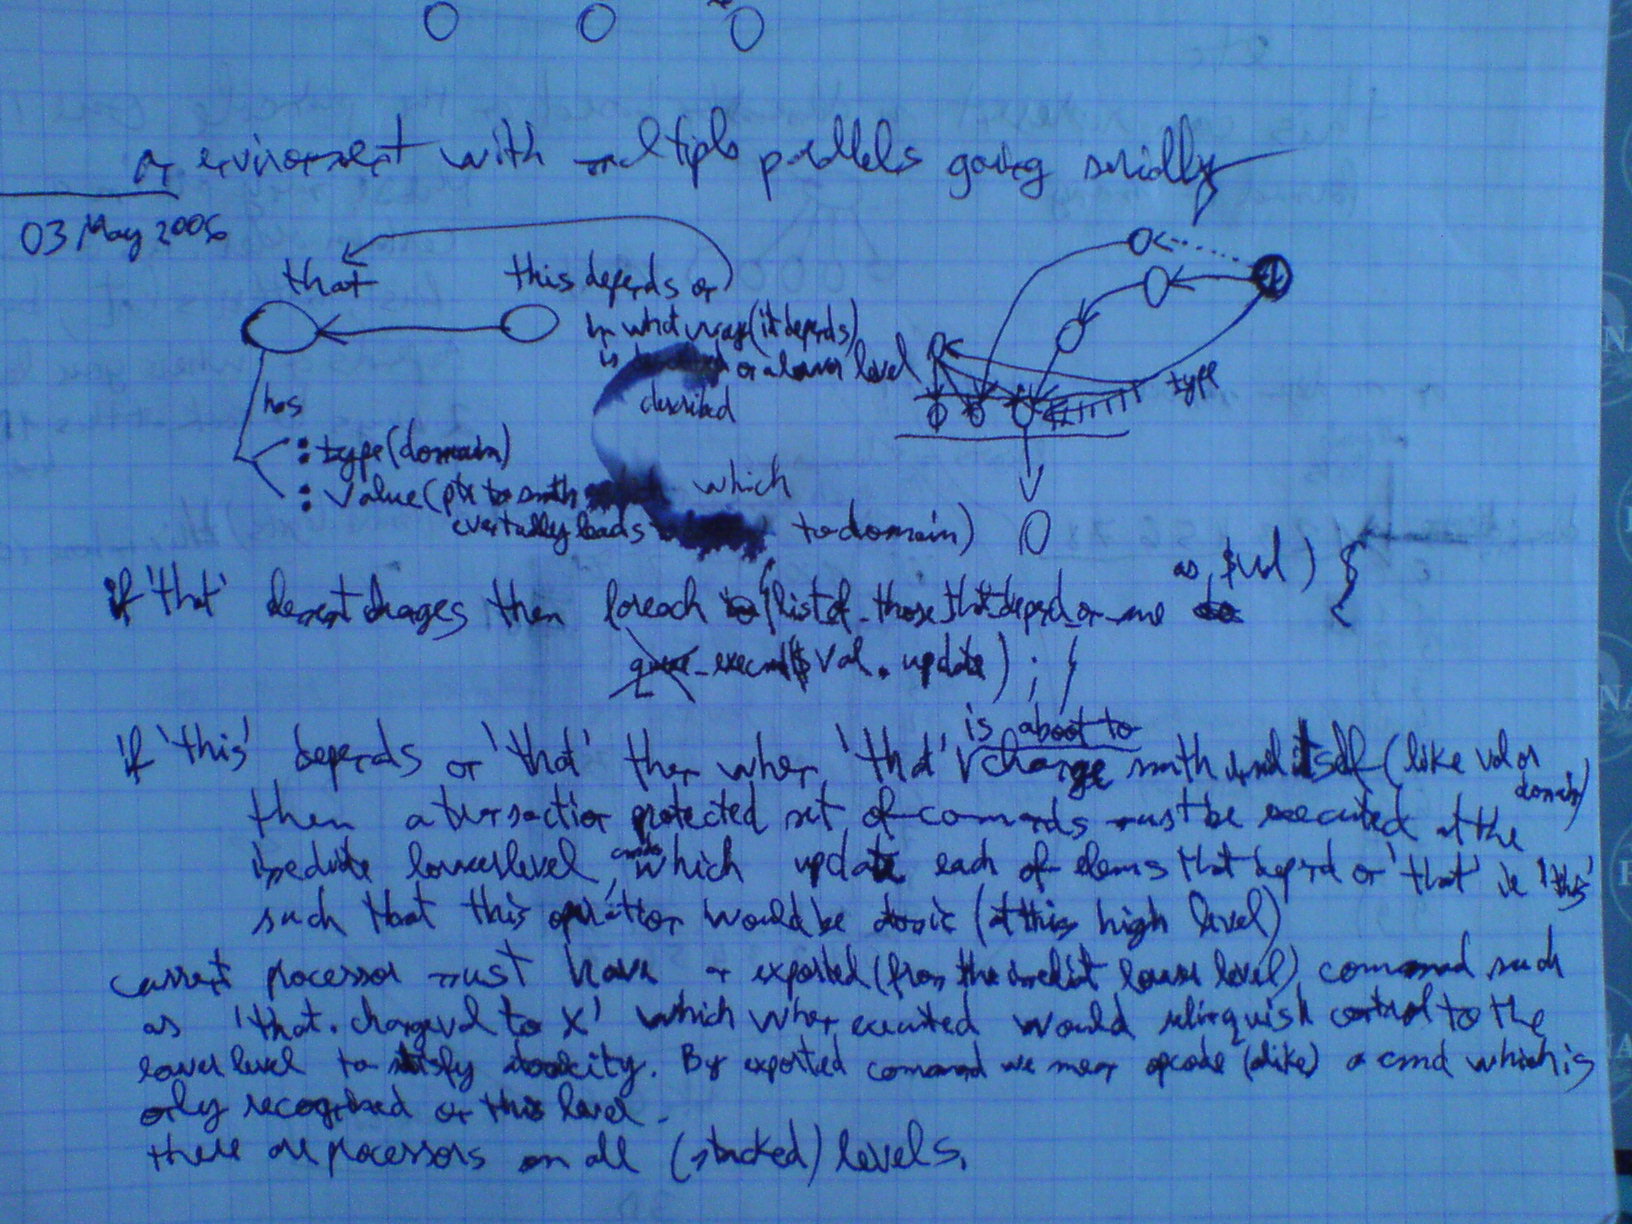 an enviroment with multiple parallels going serially
03 May 2006
that
this depends on
in what way (it depends)
is on a lower level
described
type
has
: type (domain)
: Value (ptr to smth which
eventually leads to domain)
if 'that' changes then foreach (list_of_those_that_depend_on_me as $val) {
queue_exec($val.update);
if 'this' depends on 'that' then when 'that' is about to change smth itself (like val or domain)
then a transaction protected set of commands must be executed at the
imediate lower level, which update each of elems that depend on 'that' ie 'this'
such that this operation would be atomic (at this high level)
current processor must have an exported (from the imediat lower level) command such
as 'that.changeval to X' which when executed would relinquish control to the
lower level to satisfy atomicity. By exported command we mean opcode (alike) a cmd which is
only recognized on this level.
there are processors on all (stacked) levels.